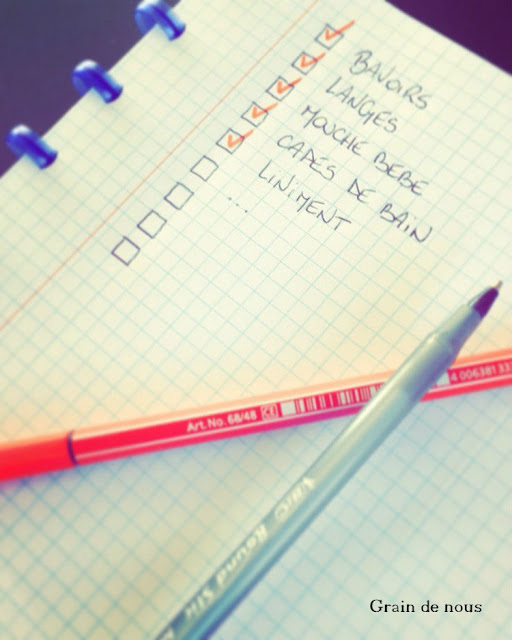 BAVOIRS
LANGES
MOUCHE BEBE
CAPES DE BAIN
LINIMENT
...
Art. No. 68/48 CE 4 006381 333
BIC Round Stic
Grain de nous